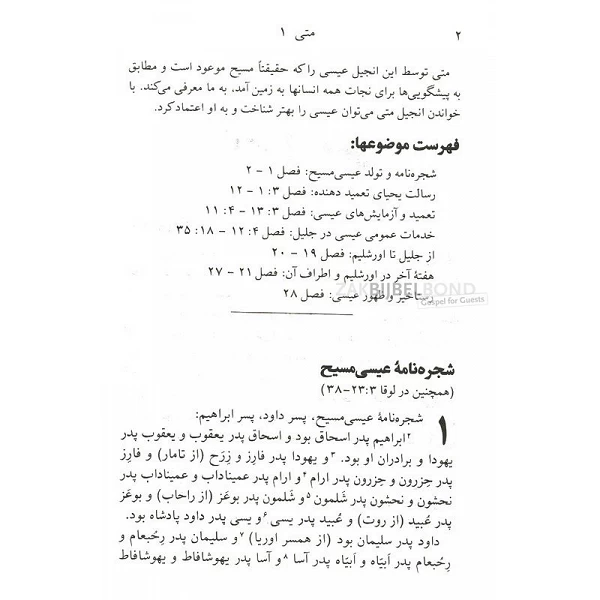 ۲ متی ۱
متی توسط این انجیل عیسی را که حقیقتاً مسیح موعود است و مطابق
به پیشگویی‌ها برای نجات همه انسانها به زمین آمد، به ما معرفی می‌کند. با
خواندن انجیل متی می‌توان عیسی را بهتر شناخت و به او اعتماد کرد.
فهرست موضوعها:
شجره‌نامه و تولد عیسی مسیح: فصل ۱ - ۲
رسالت یحیای تعمید دهنده: فصل ۳: ۱ - ۱۲
تعمید و آزمایش‌های عیسی: فصل ۳: ۱۳ - ۴: ۱۱
خدمات عمومی عیسی در جلیل: فصل ۴: ۱۲ - ۱۸: ۳۵
از جلیل تا اورشلیم: فصل ۱۹ - ۲۰
هفتهٔ آخر در اورشلیم و اطراف آن: فصل ۲۱ - ۲۷
ZAKBIJBELBOND
رستاخیز و ظهور عیسی: فصل ۲۸
Gospel for Guests
شجره‌نامهٔ عیسی مسیح
(همچنین در لوقا ۳:‏۲۳-۳۸)
۱ شجره‌نامهٔ عیسی مسیح، پسر داود، پسر ابراهیم:
۲ابراهیم پدر اسحاق بود و اسحاق پدر یعقوب و یعقوب پدر
یهودا و برادران او بود. ۳و یهودا پدر فارِز و زِرَح (از تامار) و فارِز
پدر حِزرون و حِزرون پدر ارام ۴و ارام پدر عمیناداب و عمیناداب پدر
نحشون و نحشون پدر شَلمون ۵و شَلمون پدر بوعَز (از راحاب) و بوعَز
پدر عُبید (از روت) و عُبید پدر یسی ۶و یسی پدر داود پادشاه بود.
داود پدر سلیمان بود (از همسر اوریا) ۷و سلیمان پدر رِحُبعام و
رِحُبعام پدر اَبیّاه و اَبیّاه پدر آسا ۸و آسا پدر یهوشافاط و یهوشافاط